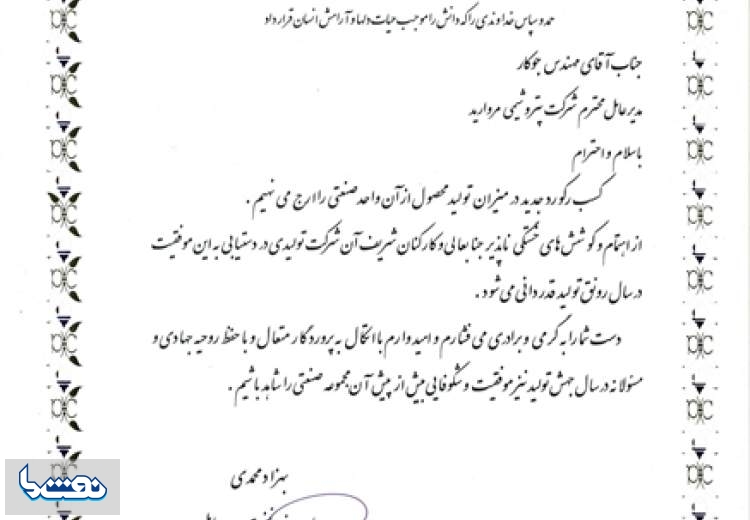 حمد و سپاس خداوندی را که دانش را موجب حیات دلها و آرامش انسان قرار داد
جناب آقای مهندس جوکار
مدیرعامل محترم شرکت پتروشیمی مروارید
باسلام و احترام
کسب رکورد جدید در میزان تولید محصول از آن واحد صنعتی را ارج می نهیم .
از اهتمام و کوشش های خستگی ناپذیر جنابعالی و کارکنان شریف آن شرکت تولیدی در دستیابی به این موفقیت
در سال رونق تولید قدردانی می شود .
دست شما را به گرمی و برادری می فشارم و امید وارم با اتکال به پروردگار متعال و با حفظ روحیه جهادی و
مسئولانه در سال جهش تولید نیز موفقیت و شکوفایی بیش از پیش آن مجموعه صنعتی را شاهد باشیم .
بهزاد محمدی
نفت ما